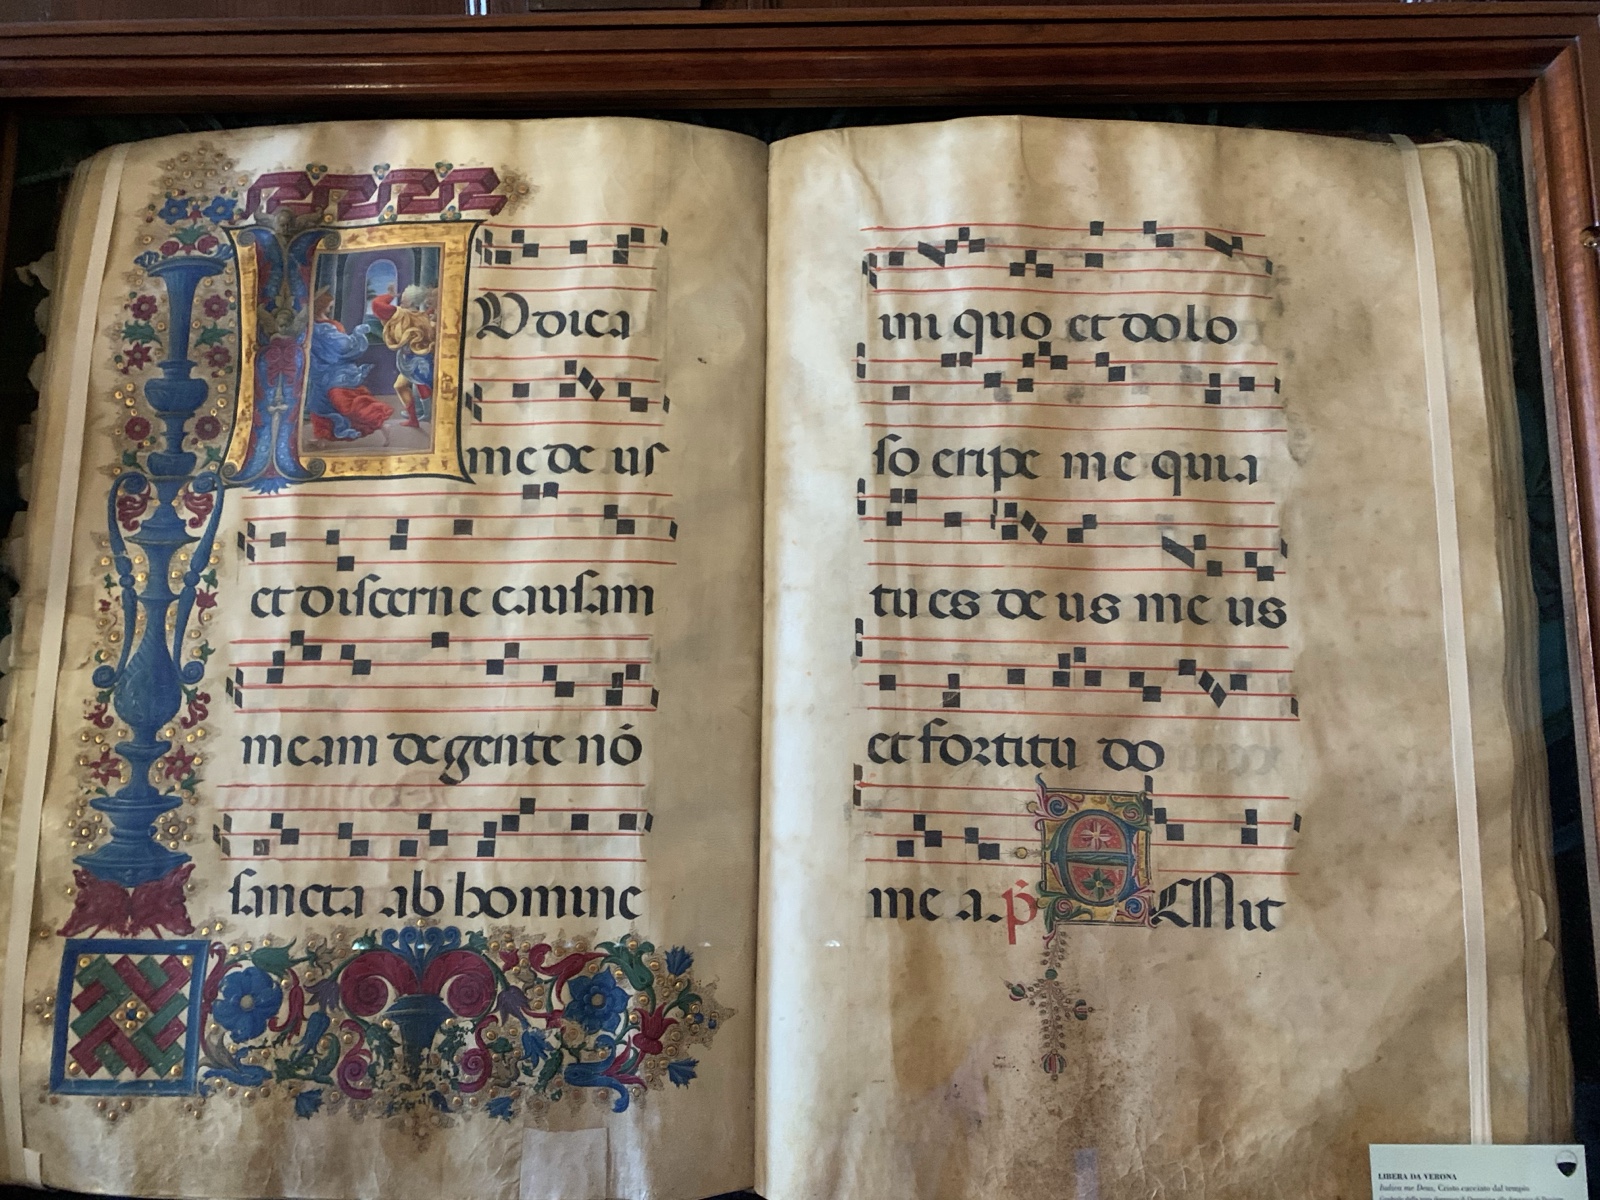 IVdica
me de us
et discerne causam
meam de gente nō
sancta ab homine
ini quo et dolo
so eripe me quia
tu es de us me us
et fortitu do
me a. p̄s EMit
LIBERA DA VERONA
Iudica me Deus, Cristo cacciato dal tempio